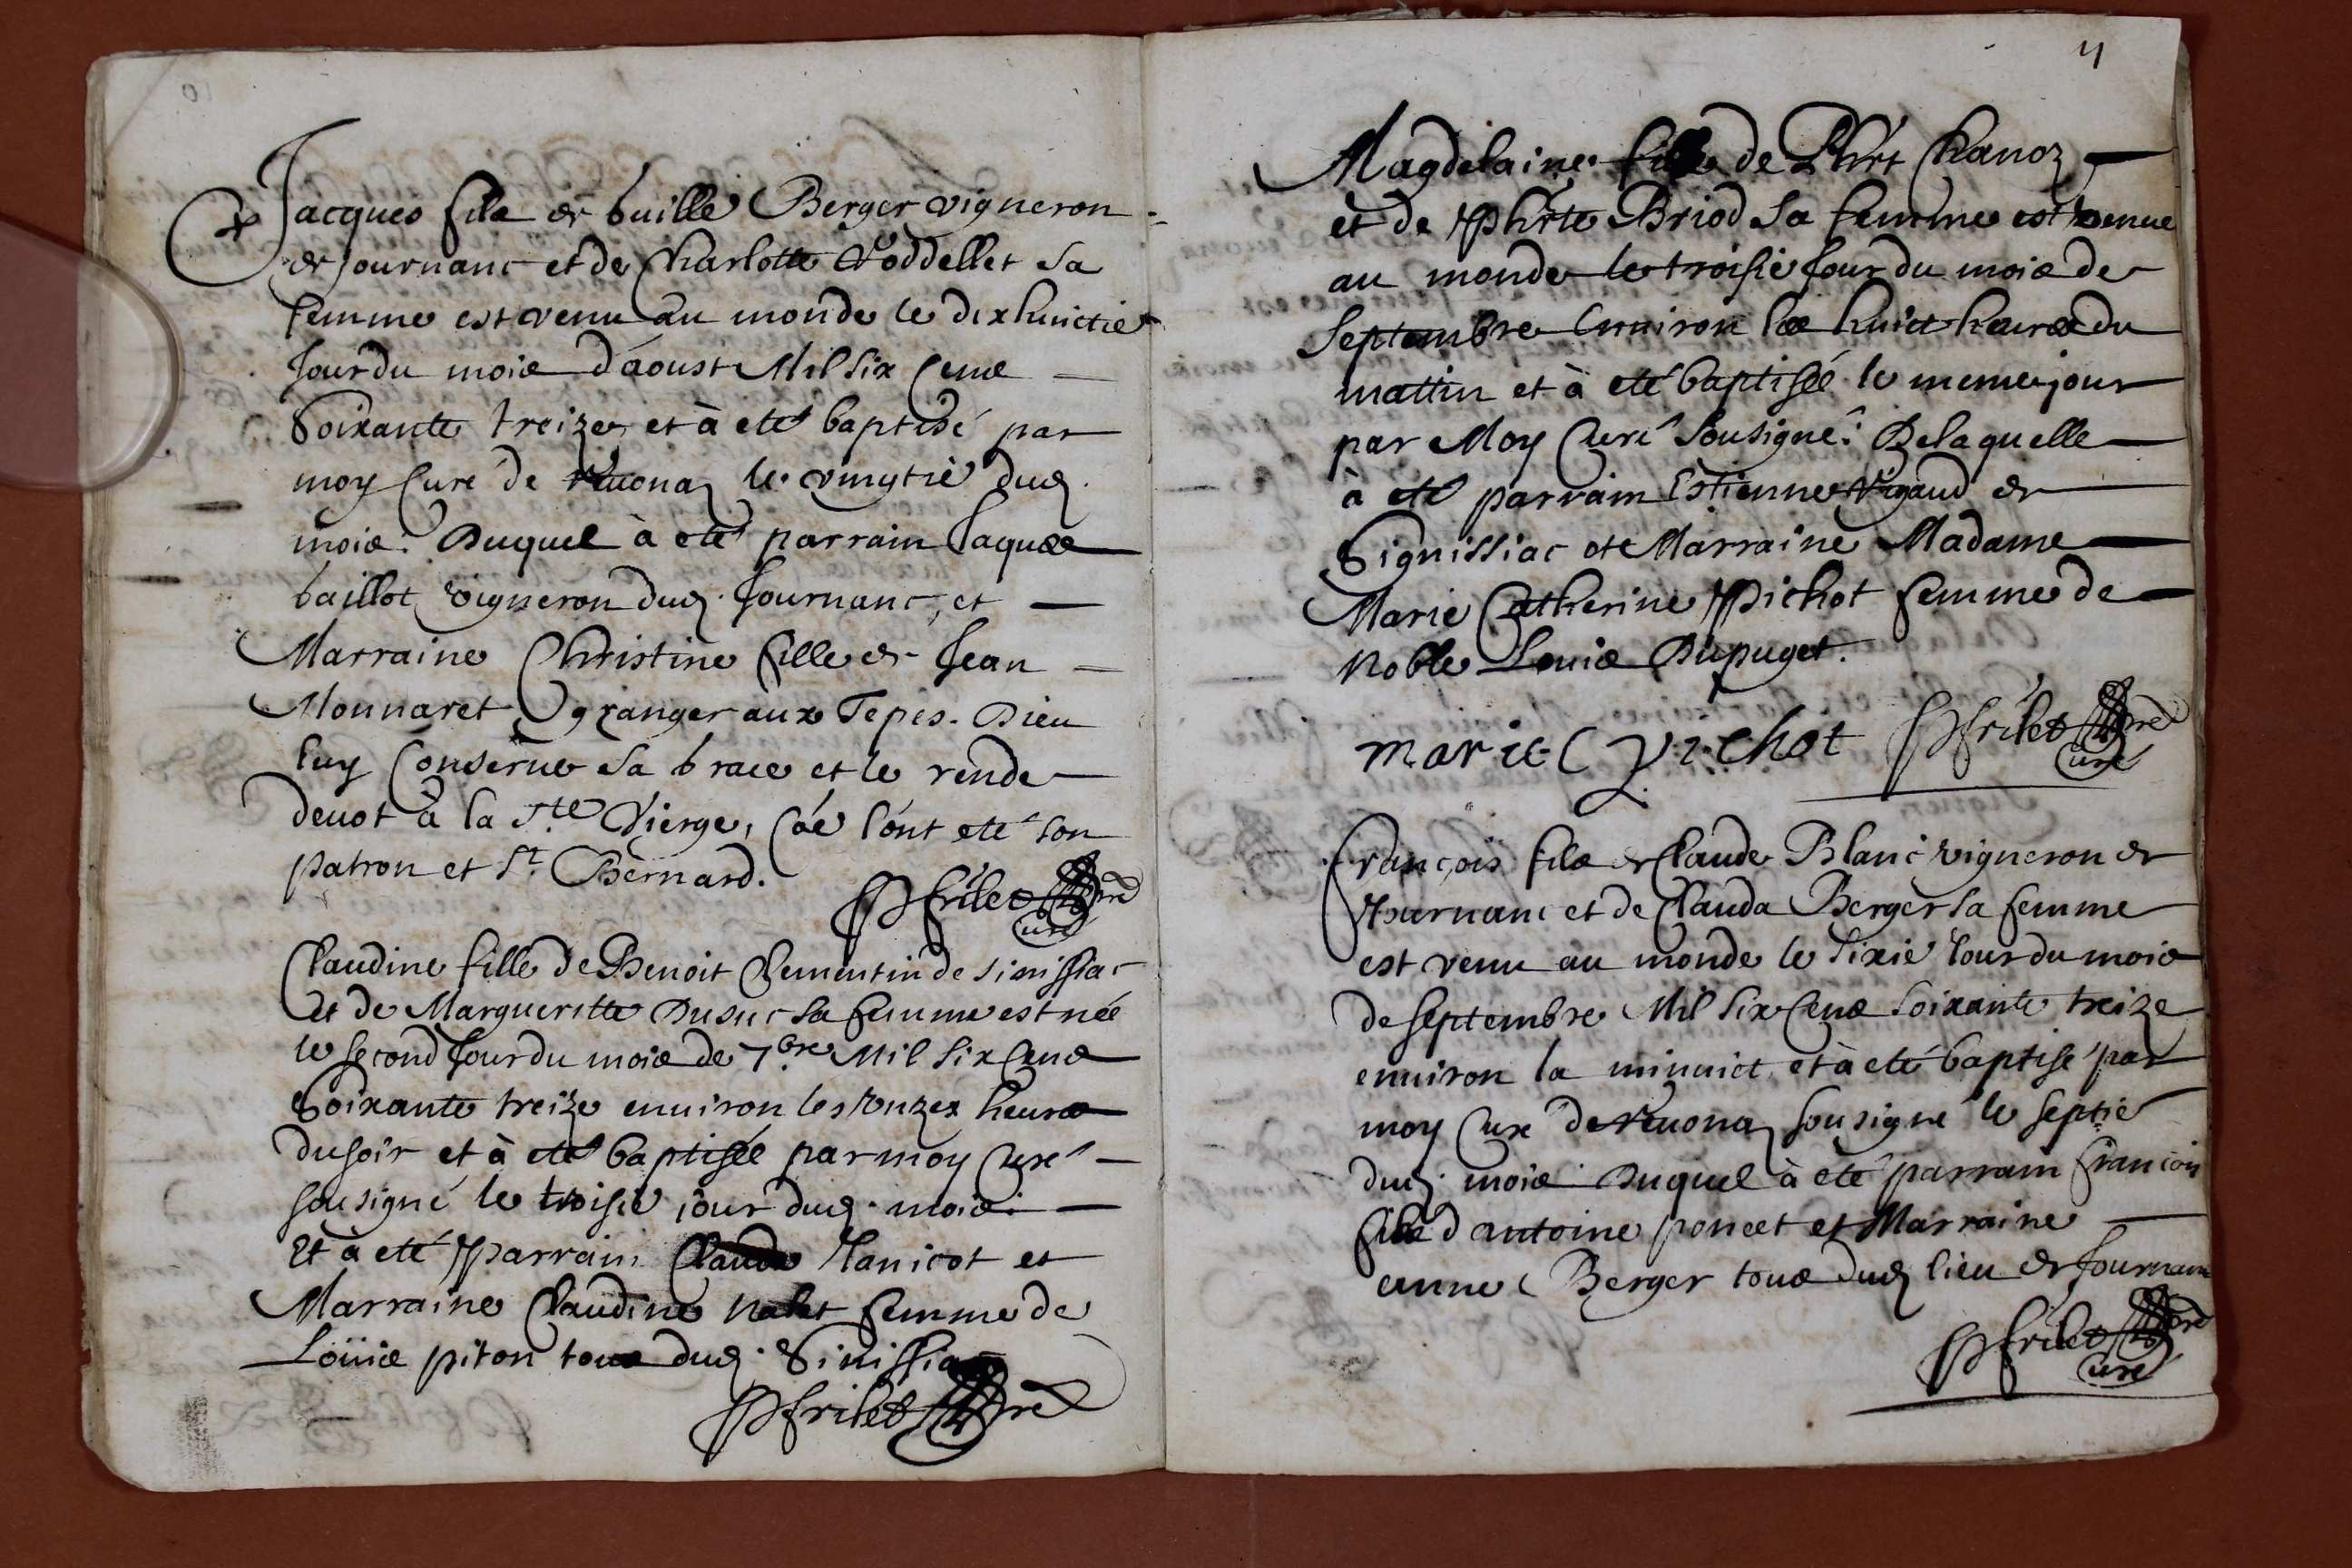 Jacques fils de Guille Berger vigneron
de Journans et de Charlotte Voddellet sa
femme est venu au monde le dixhuictie
Jour du mois d'aoust Mil six Cens
Soixante treize et à eté baptisé par
moy Curé de Reuonaz le vingtiè dud.
mois. Duquel à eté parrain Jaques
baillot vigneron dud. Journans, et
Marraine Christine fille de Jean
Monnaret granger aux Tepes. Dieu
luy Conserue sa Grace et le rende
deuot à la Ste Vierge, l'ont eté son
patron et St. Bernard.
P frilet pre
Curé
Claudine fille de Benoit Clementin de Sinissiac
et de Margueritte Dusuc sa femme est née
le second Jour du mois de 7.bre Mil Six Cens
Soixante treize enuiron les onzes heures
du soir et à eté baptisée par moy Curé
sousigné le troisiè jour dud. mois.
Et à eté parrain Claude Janicot et
Marraine Claudine Nalet femme de
Loüis piton tous dud. Sinissiac
P frilet pre
11
Magdelaine fille de Phrt Chanoz
et de phrte Briod sa femme est venue
au monde le troisiè Jour du mois de
Septembre Enuiron les huict heures du
mattin et à eté baptisée le meme jour
par Moy Curé Sousigné. De laquelle
à eté parrain Estienne Rigaud de
Signissiac et Marraine Madame
Marie Catherine Pichot femme de
Noble Louis Dupuget.
marie C pichot P frilet pre
Curé
François fils de Claude Blanc vigneron de
Journans et de Clauda Berger sa femme
est venu au monde le sixiè Jour du mois
de septembre Mil Six Cens soixante treize
enuiron la minuict, et à eté baptisé par
moy Curé de Reuonaz sousigné le septiè
dud. mois. Duquel à eté parrain françois
fils d'antoine poncet et Marraine
anne Berger tous dud. lieu de Journans
P frilet pre
Curé